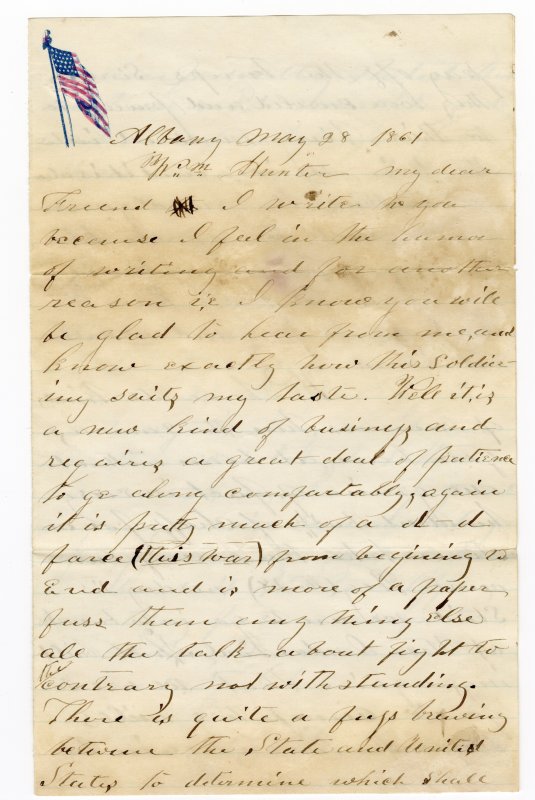 Albany May 28 1861
Wm Hunter my dear
Friend I write to you
because I feel in the humor
of writing and for another
reason i,e I know you will
be glad to hear from me, and
know exactly how this Soldier-
ing suits my taste. Well it,is
a new kind of business and
requires a great deal of patience
to go along comfortably, again
it is pretty much of a d d
farce (this war) from begining to
End and is more of a paper
fuss than any thing else
all the talk about fight to
the contrary not withstanding.
There is quite a fuss brewing
between the State and United
States to determine which shall